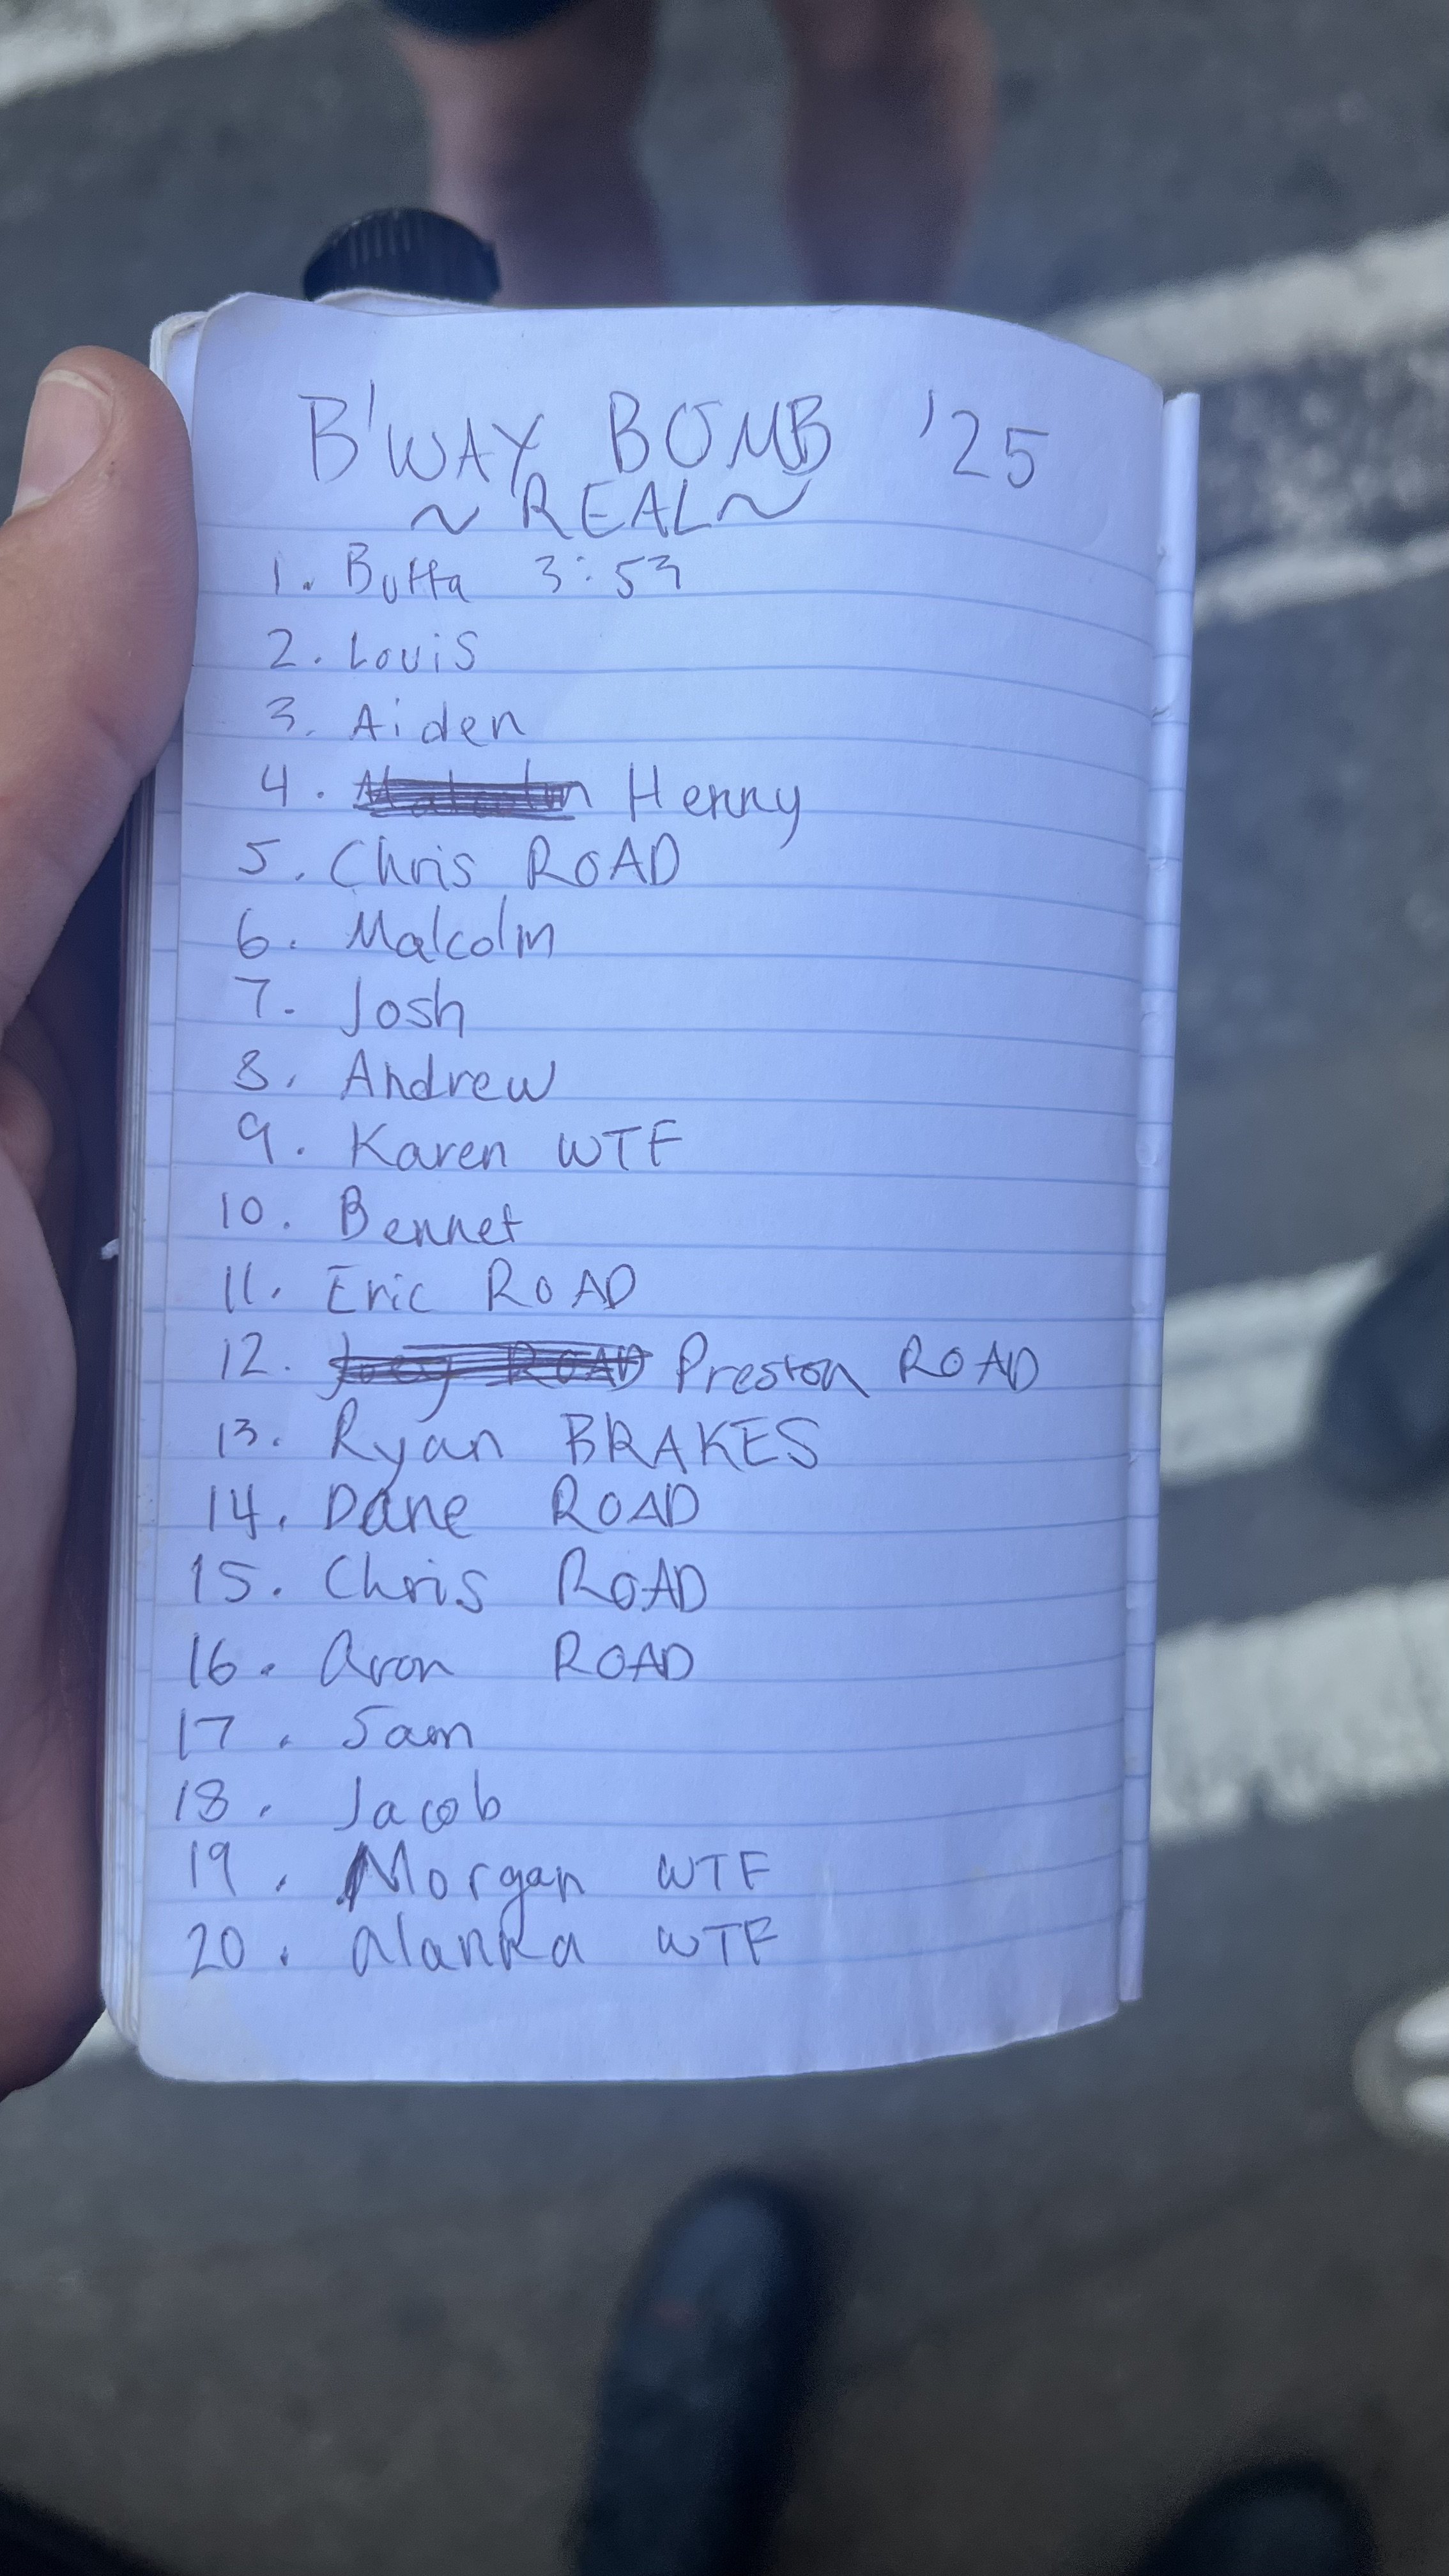 B'WAY BOMB '25
~ REAL ~
1. Butta 3:53
2. Louis
3. Aiden
4. Henny
5. Chris ROAD
6. Malcolm
7. Josh
8. Andrew
9. Karen WTF
10. Bennet
11. Eric ROAD
12. Joey ROAD Preston ROAD
13. Ryan BRAKES
14. Dane ROAD
15. Chris ROAD
16. Aron ROAD
17. Sam
18. Jacob
19. Morgan WTF
20. Alanna WTF